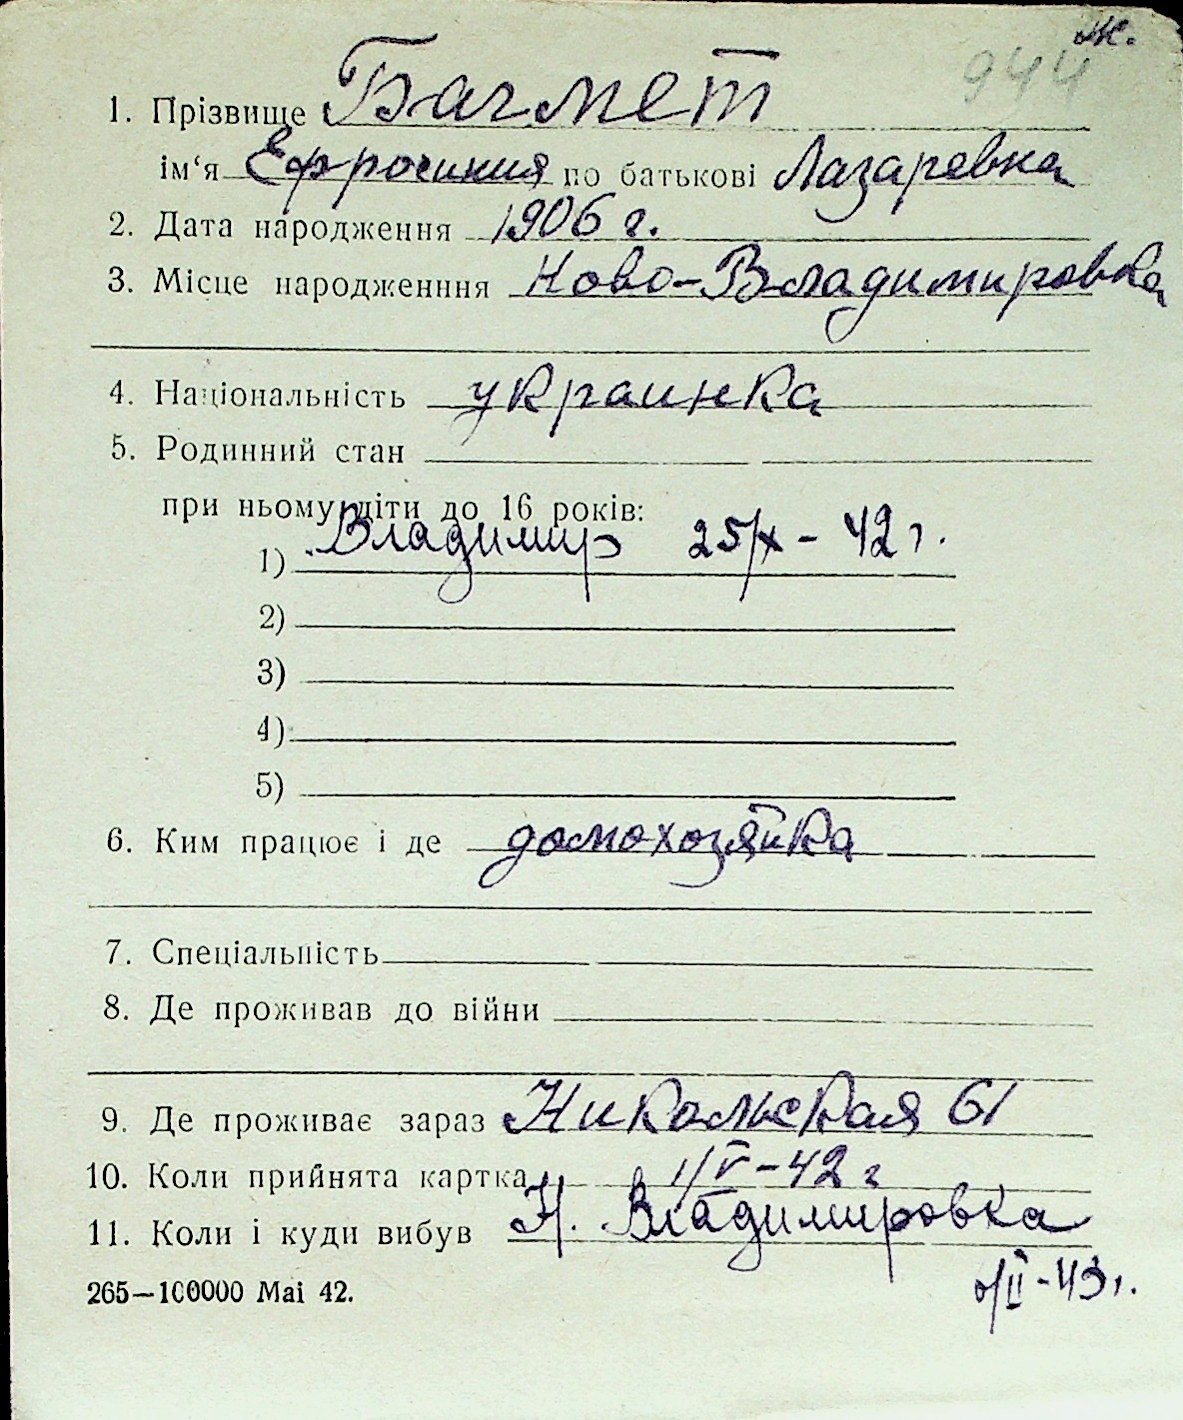 ж.
944
1. Прізвище Багмет
ім‘я Ефросиния по батькові Лазаревна
2. Дата народження 1906 г.
3. Місце народженння Ново-Владимировка
4. Національність украинка
5. Родинний стан
при ньому діти до 16 років:
1) Владимир 25/X - 42 г.
2)
3)
4)
5)
6. Ким працює і де домохозяйка
7. Спеціальність
8. Де проживав до війни
9. Де проживає зараз Никольская 61
10. Коли прийнята картка 1/V - 42 г
11. Коли і куди вибув Н. Владимировка
/II - 43 г.
265—100000 Mai 42.